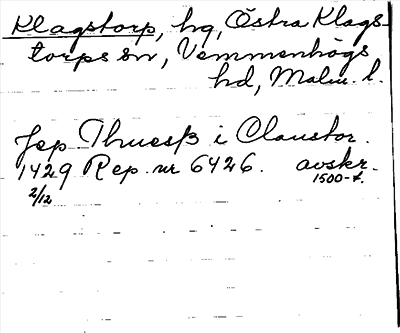 Klagstorp, hg, Östra Klags-
torps sn, Vemmenhögs
hd, Malm. l.
Jep Thuesß i Claustor.
1429 Rep. nr 6426. avskr.
2/12 1500-t.